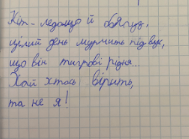 Кіт - ледащо й облуда,
цілий день мурчить під вухо,
що він тигрові рідня
Хай хтось вірить,
та не я!